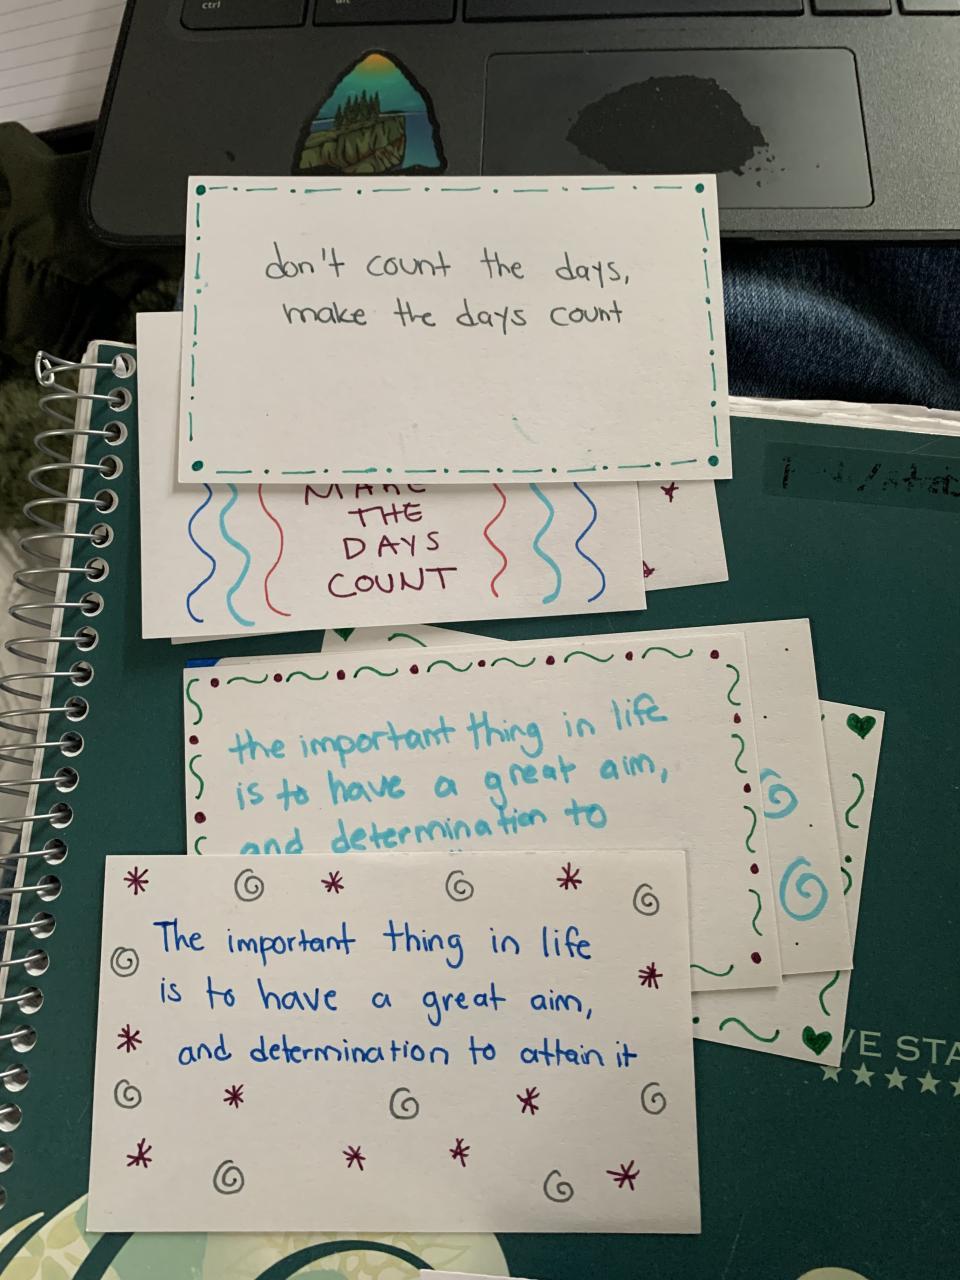 ctrl
don't count the days,
make the days count
MAKE
THE
DAYS
COUNT
the important thing in life
is to have a great aim,
and determination to
The important thing in life
is to have a great aim,
and determination to attain it
VE STA